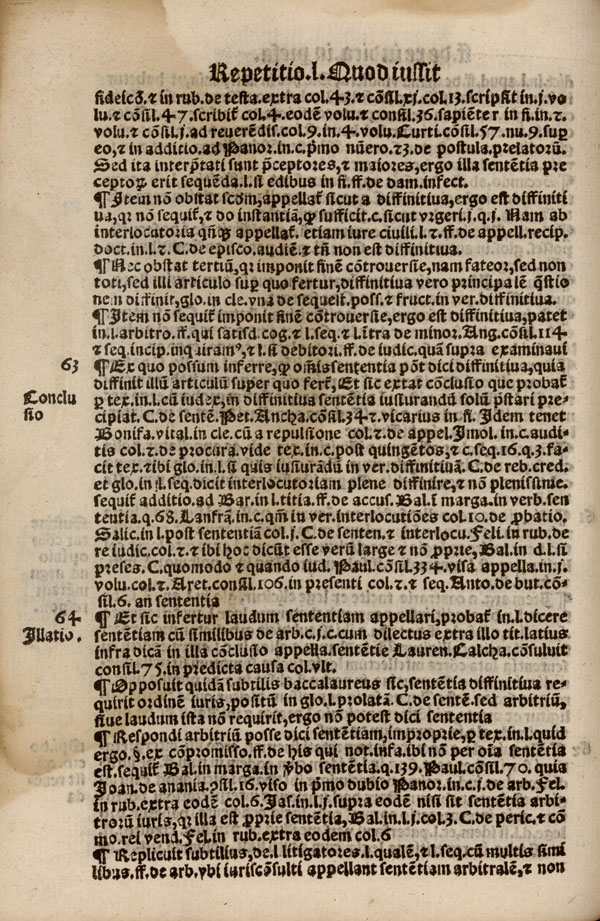 Repetitio.l.Quod iussit
fideicō.⁊ in rub.de testa.extra col.43.⁊ cōsil.xj.col.13.scripsit in.j.vo
lu.⁊ cōsil.47.scribiť col.4.eodē volu.⁊ consil.36.sapiēter in fi.in.2.
volu.⁊ cōsil.j.ad reuerēdis.col.9.in.4.volu.Curti.cōsil.57.nu.9.suꝑ
eo,⁊ in additio.ad Panor.in c.pᵐo nūero.⁊3.de postula.prelatorū.
Sed ita interp̄tati sunt p̄ceptores,⁊ maiores,ergo illa sentētia pre
ceptoꝝ erit sequēda.l.si edibus in fi.ff.de dam.infect.
¶ Item nō obstat scd̄m,appellať sicut a diffinitiua,ergo est diffiniti
ua,qꝛ nō sequiť,⁊ do instantiā,ꝙ sufficit.c.sicut vrgeri.j.q.j. Nam ab
interlocutoria qn̄qꝫ appellať. etiam iure ciuili.l.2.ff.de appell.recip.
doct.in.l.2.C.de episco.audiē.⁊ tn̄ non est diffinitiua.
¶ Nec obstat tertiū,qꝛ imponit finē cōtrouersie,nam fateor,sed non
toti,sed illi articulo suꝑ quo fertur,diffinitiua vero principalē q̄stio
nem diffinit,glo.in cle.vna de sequest.poss.⁊ fruct.in ver.diffinitiua.
¶ Item nō sequiť imponit finē cōtrouersie,ergo est diffinitiua,patet
in.l.arbitro.ff.qui satisd.cog.⁊ l.seq.⁊ l.ītra de minor.Ang.cōsil.114
⁊ seq.incip.inqꝫiramꝰ,⁊ l.si debitori.ff.de iudic.quā supra examinaui
63 ¶ Ex quo possum inferre,ꝙ oīs sententia pōt dici diffinitiua,quia
diffinit illū articulū super quo ferť, Et sic extat cōclusio que probať
Conclu
sio
ꝑ tex.in.l.cū iudex,in diffinitiua sentētia iusiurandū solū p̄stari pre-
cipiat.C.de sentē.Pet.Ancha.cōsil.34⁊.vicarius in fi. Idem tenet
Bonifa.vital.in cle.cū a repulsione col.2.de appel.Imol.in.c.audi-
tis col.2.de procura.vide tex.in.c.post quingētos,⁊ c.seq.16.q.3.fa-
cit tex.⁊ibi glo.in.l.si quis iusiurādū in ver.diffinitiuā.C.de reb.cred.
et glo.in .l.seq.dicit interlocutoriam plene diffinire,⁊ nō plenissime.
sequiť additio.ad Bar.in l.titia.ff.de accus.Bal.ī marga.in verb.sen
tentia.q.68.Lanfrā.in.c.qm̄ in ver.interlocutiōes col.10.de ꝓbatio.
Salic.in l.post sententiā col.j.C.de senten.⁊ interlocu.Feli.in rub.de
re iudic.col.2.⁊ ibi hoc dicūt esse verū large ⁊ nō ꝓprie,Bal.in d.l.si
preses.C.quomodo ⁊ quando iud. Paul.cōsil.334.visa appella.in.j.
volu.col.2.Aret.consil.106.in presenti col.2.⁊ seq.Anto.de but.cō-
sil.6. an sententia
64 ¶ Et sic infertur laudum sententiam appellari,probať in.l.dicere
Illatio. sentētiam cū similibus de arb.c.j.c.cum dilectus extra illo tit.latius
infra dicā in illa cōclusio appella.sentētie Lauren.Calcha.cōsuluit
consil.75.in predicta causa col.vlt.
¶ Opposuit quidā subtilis baccalaureus sic,sentētia diffinitiua re-
quirit ordinē iuris,positū in glo.l.prolatā.C.de sentē.sed arbitriū,
siue laudum ista nō requirit,ergo nō potest dici sententia
¶ Respondi arbitriū posse dici sentētiam,improprie,ꝑ tex.in.l.quid
ergo.§.ex cōpromisso.ff.de his qui not.infa.ibi nō per oīa sentētia
est.sequiť Bal.in marga.in ꝟbo sentētia.q.139.Paul.cōsil.70. quia
Joan.de anania.ꝯsil.16.viso in pᵐo dubio Panor.in c.j.de arb.Fel.
in rub.extra eodē col.6.Jas.in.l.j.supra eodē nisi sit sentētia arbi-
troꝝū iuris,qꝛ illa est ꝓprie sentētia,Bal.in l.j.col.3.C.de peric.⁊ cō
mo.rei vend.Fel.in rub.extra eodem col.6
¶ Replicuit subtilius,de.l litigatores.l.qualē,⁊ l.seq.cū multis simi
libus.ff.de arb.vbi iuriscōsulti appellant sentētiam arbitralē,⁊ non